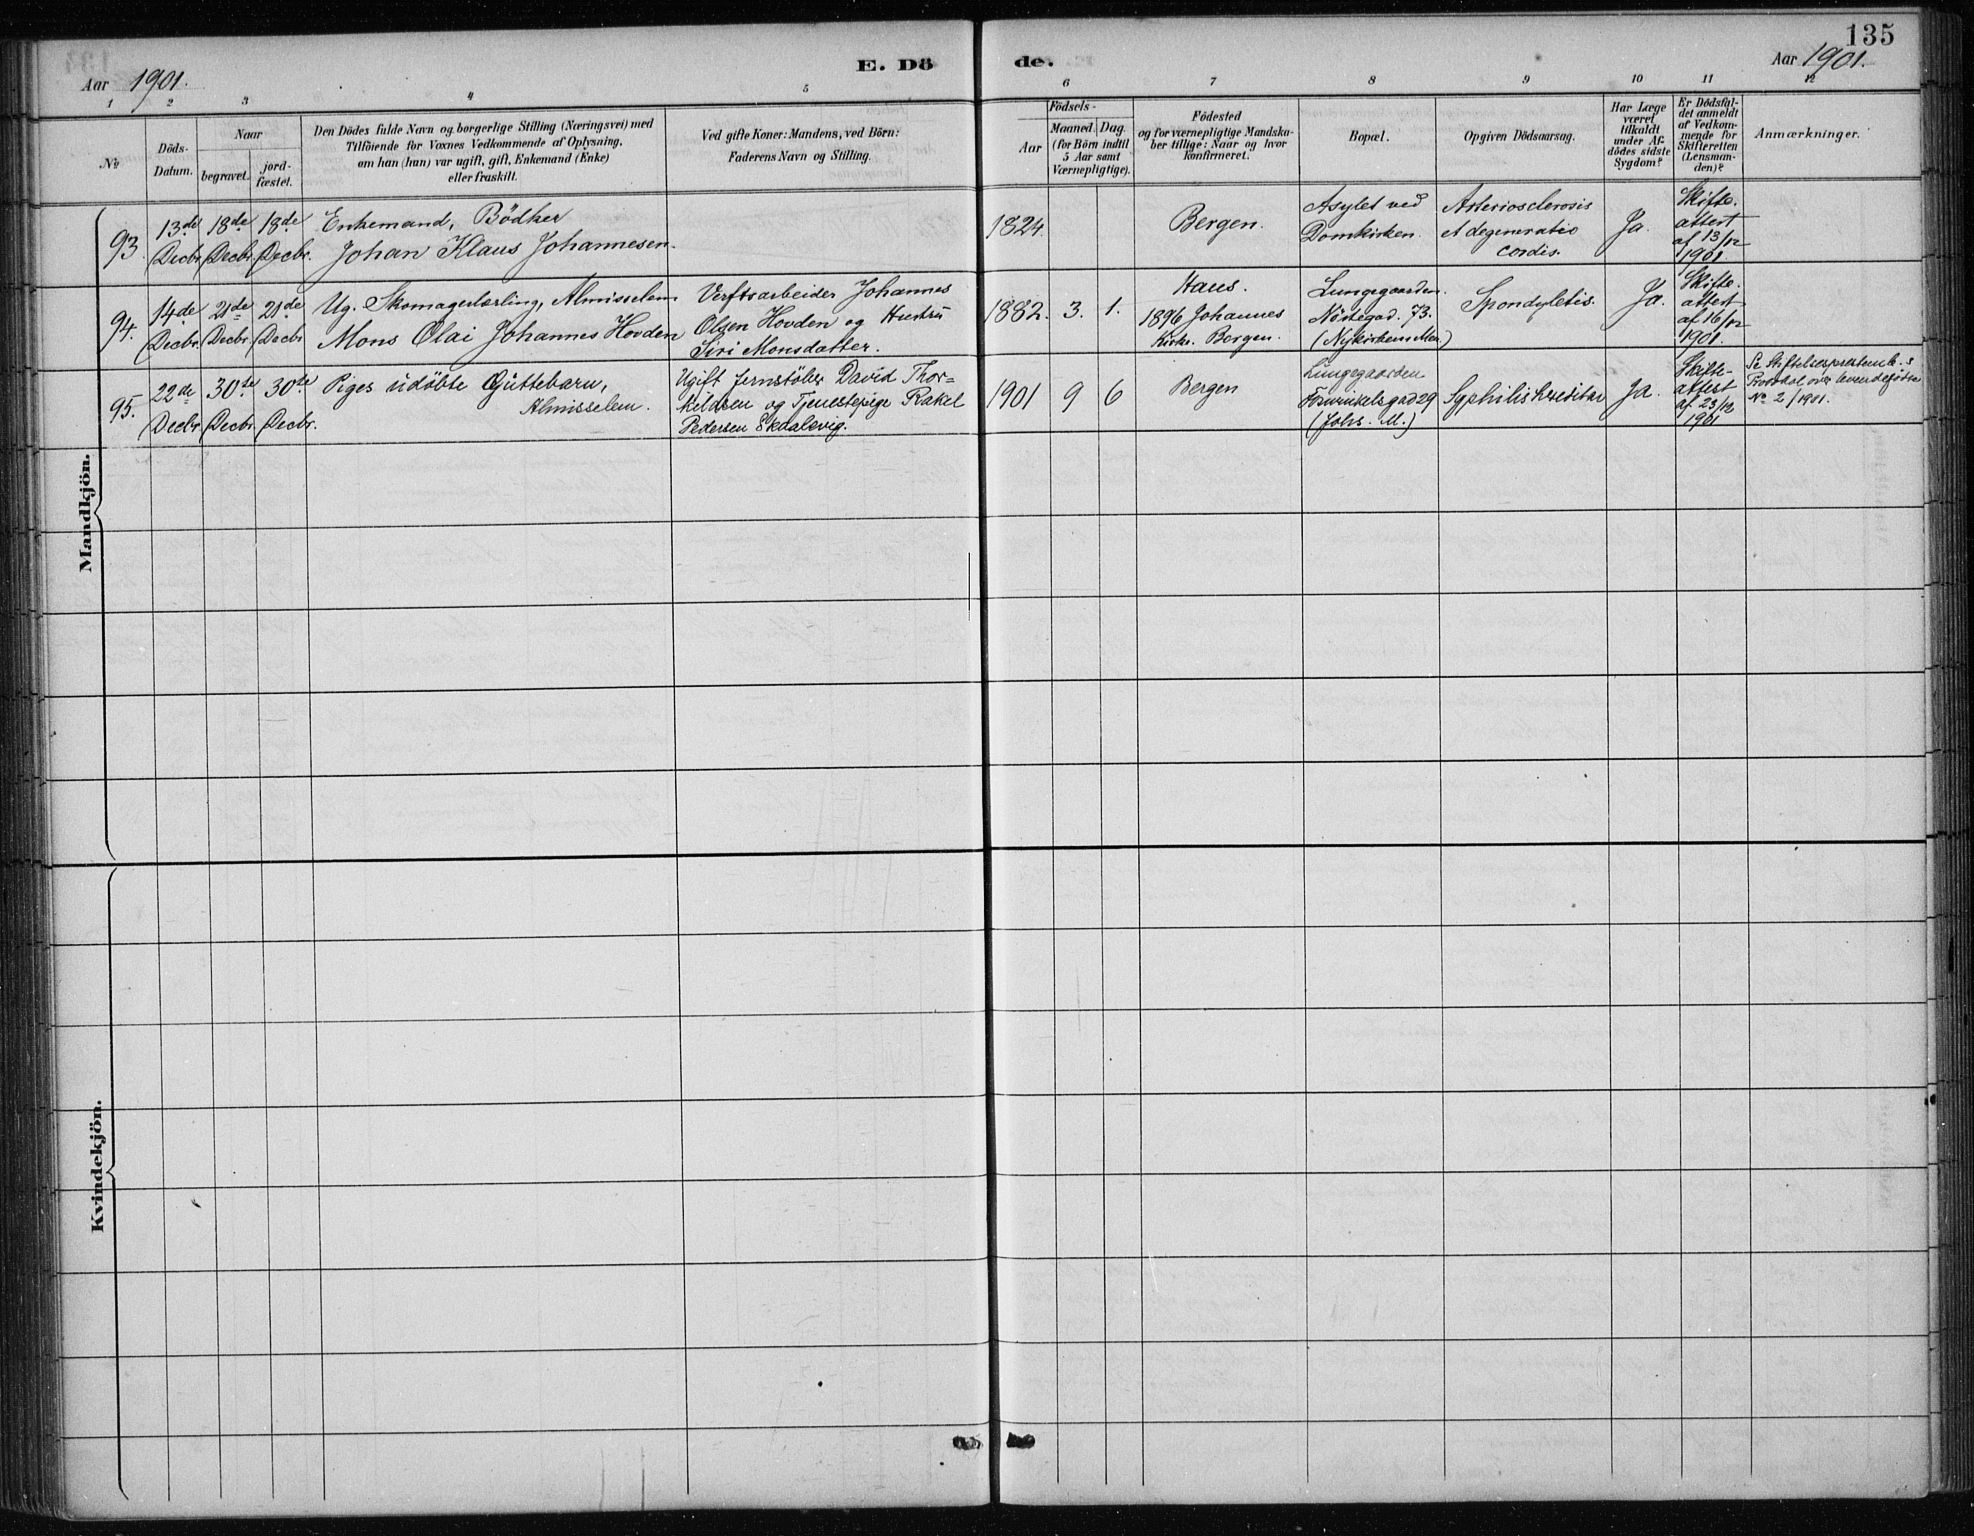 135
Aar 1901.
E. Dö
de.
Aar 1901.
1 2 3 4 5 6 7 8 9 10 11 12
No
Döds-
Datum.
Naar
begravet.
jord-
fæstet.
Den Dödes fulde Navn og borgerlige Stilling (Næringsvei) med
Tilföiende for Voxnes Vedkommende af Oplysning,
om han (hun) var ugift, gift, Enkemand (Enke)
eller fraskilt.
Ved gifte Koner: Mandens, ved Börn:
Faderens Navn og Stilling.
Födsels-
Aar
Maaned. Dag.
(for Börn indtil
5 Aar samt
Værnepligtige).
Födested
og for værnepligtige Mandska-
ber tillige: Naar og hvor
konfirmeret.
Bopæl.
Opgiven Dödsaarsag.
Har Læge
været
tilkaldt
under Af-
dödes sidste
Sygdom?
Er Dödsfal-
det anmeldt
af Vedkom-
mende for
Skifteretten
(Lensman-
den)?
Anmærkninger.
Mandkjön.
93.
13de
Decbr.
18de
Decbr.
18de
Decbr.
Enkemand, Bödker
Johan Klaus Johannesen.
1824.
Bergen.
Asylet ved
Domkirken.
Arteriosclerosis
et degeneratio
cordis.
Ja.
Skifte.
attest
af 13/12
1901
94.
14de
Decbr.
21de
Decbr.
21de
Decbr.
Ug. Skomagerlærling, Almisselem
Mons Olai Johannes Hovden
Verftsarbeider Johannes
Olsen Hovden og Hustru
Siri Monsdatter.
1882. 3. 1.
Haus.
1896 Johannes
Kirke. Bergen.
Lungegaarden.
Nöstegad. 73.
(Nykirkens Men.)
Spondyletis.
Ja.
Skifte.
attest
af 16/12
1901.
95.
22de
Decbr.
30te
Decbr.
30te
Decbr.
Piges udöbte Guttebarn,
Almisselem.
Ugift Jernstöber David Thor=
kildsen og Tjenestepige Rakel
Pedersen Skaalevig.
1901 9 6
Bergen
Lungegaarden
(Johs. M.)
Syphilis hereditar
Ja.
Skifte-
attest
af 23/12
1901
Protokol over levendefödte
No 2/1901.
Kvindekjön.